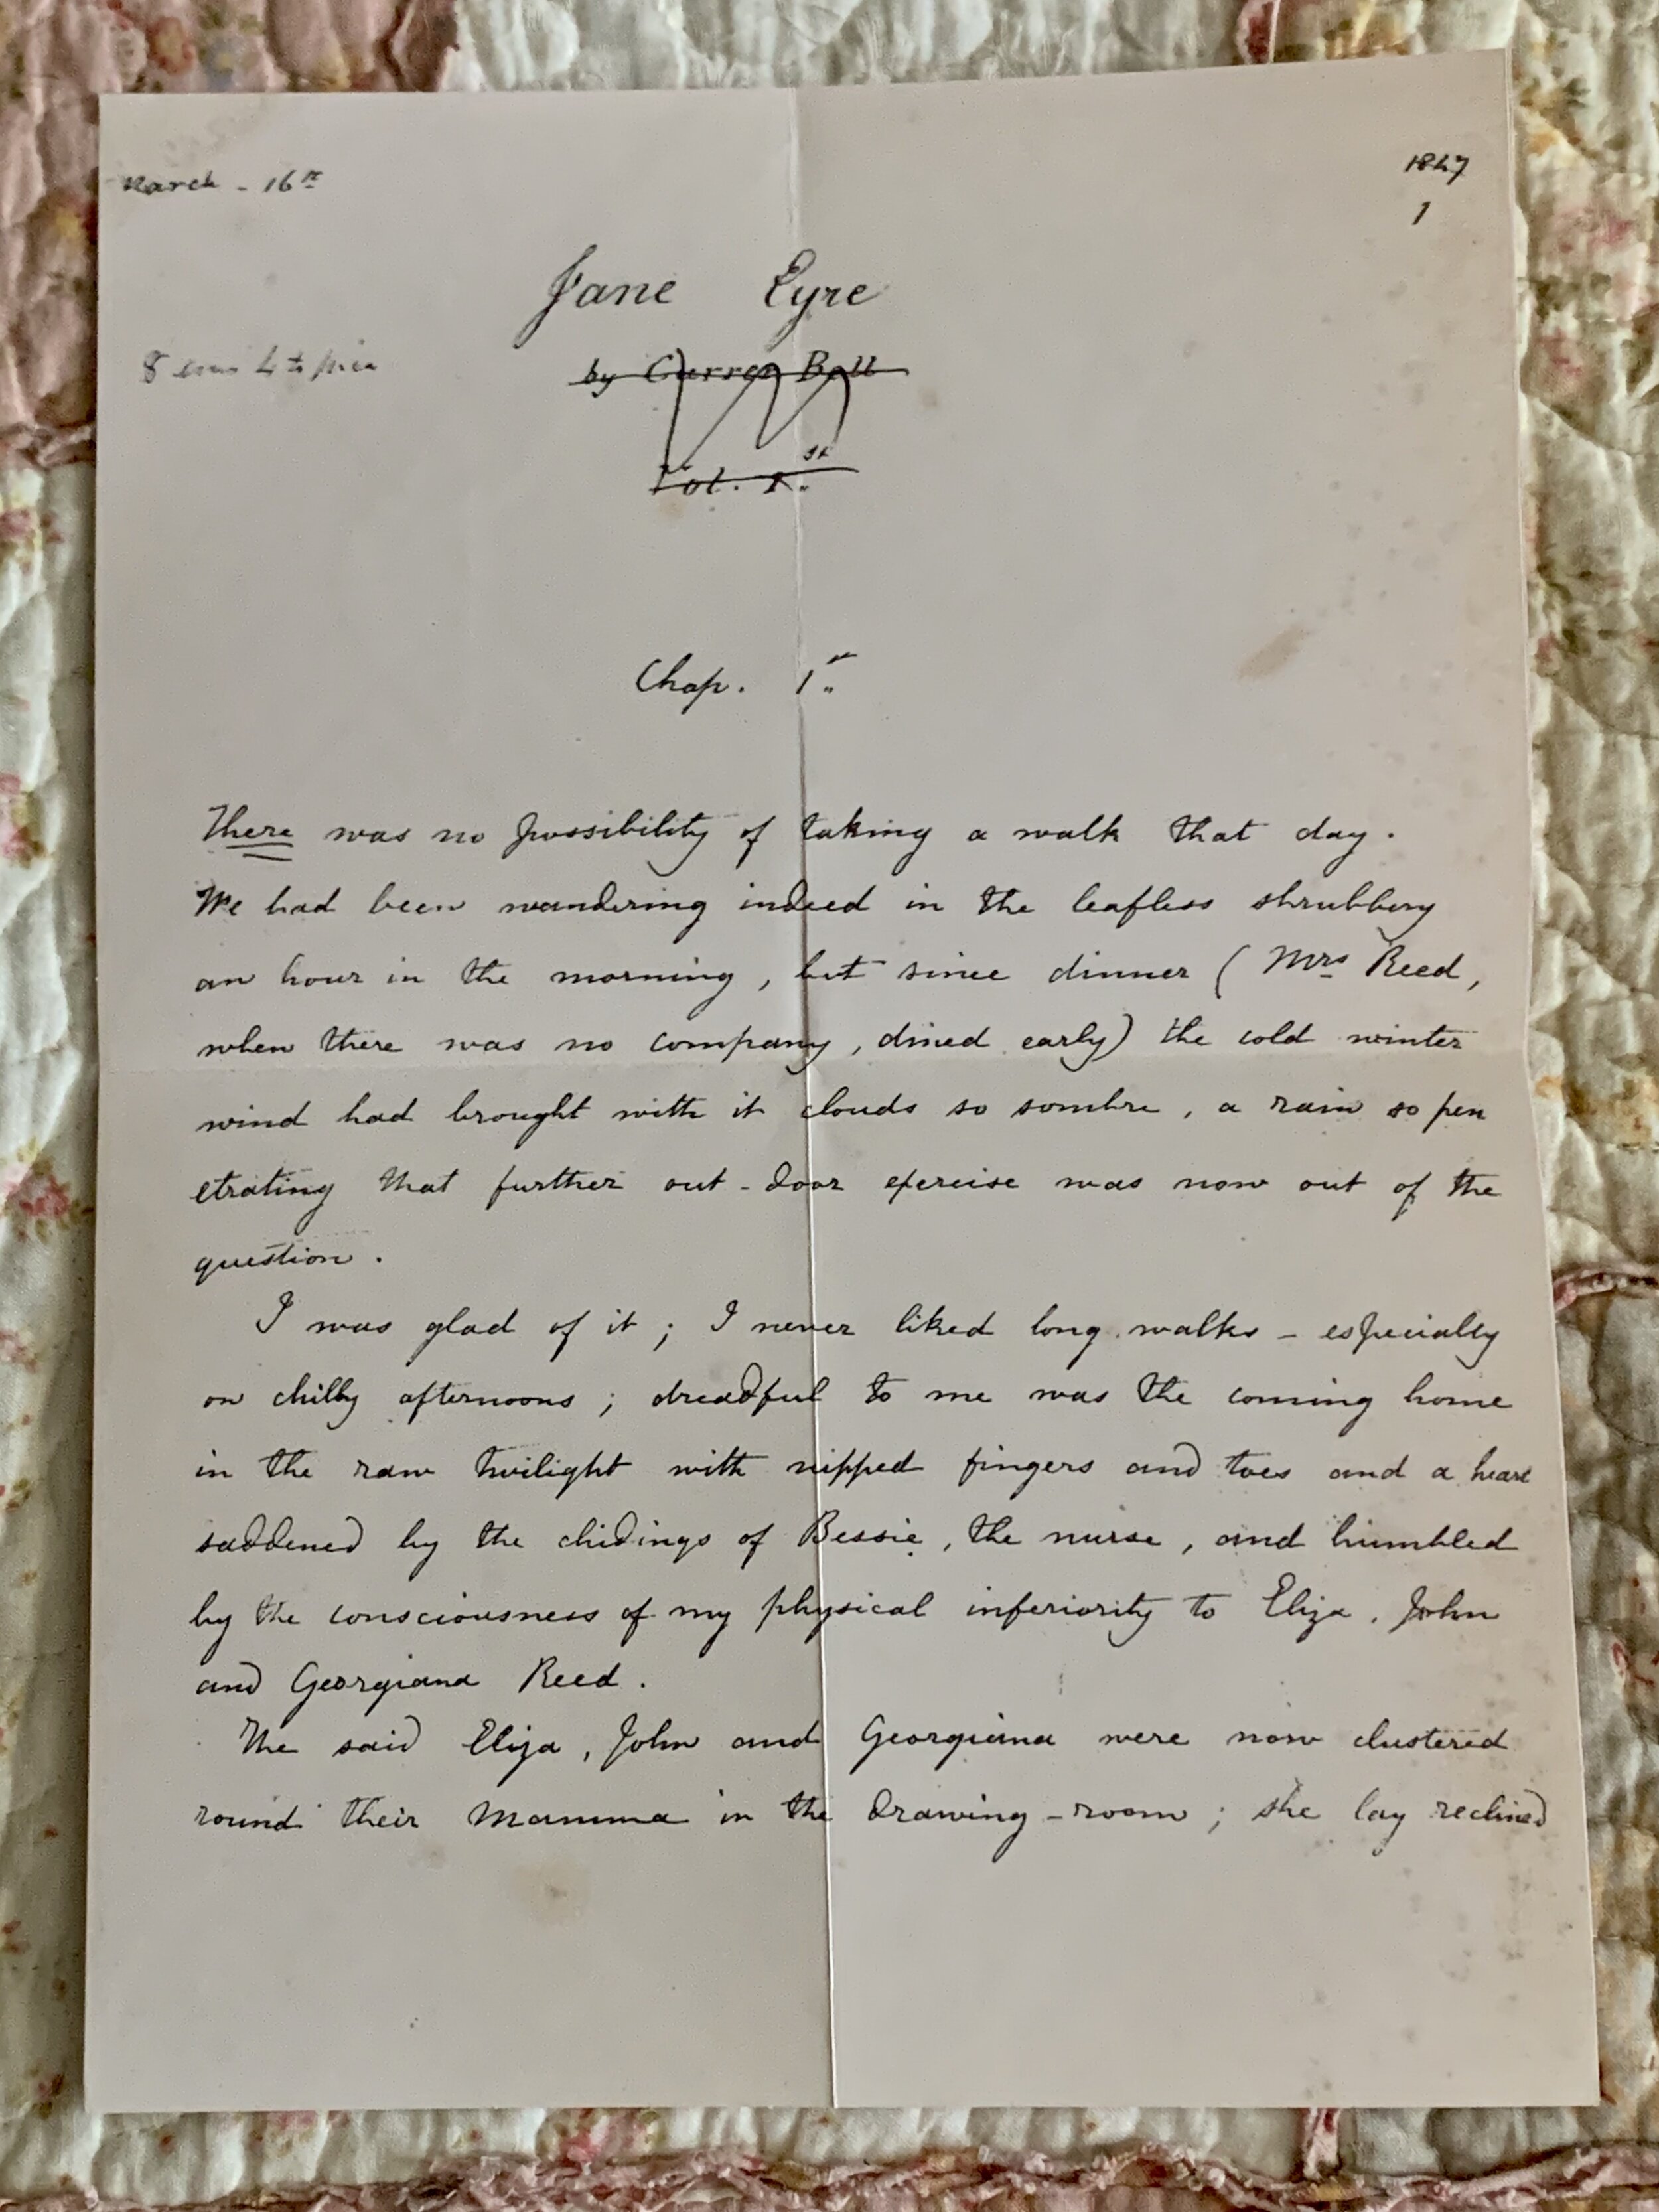 March - 16th
1847
1
Jane Eyre
by Currer Bell
8 4to pica
Vol. 1.st
Chap. 1.st
There was no possibility of taking a walk that day.
We had been wandering indeed in the leafless shrubbery
an hour in the morning, but since dinner (Mrs Reed,
when there was no company, dined early) the cold winter
wind had brought with it clouds so sombre, a rain so pen
etrating that further out-door exercise was now out of the
question.
I was glad of it; I never liked long walks - especially
on chilly afternoons; dreadful to me was the coming home
in the raw twilight with nipped fingers and toes and a heart
saddened by the chidings of Bessie, the nurse, and humbled
by the consciousness of my physical inferiority to Eliza, John
and Georgiana Reed.
The said Eliza, John and Georgiana were now clustered
round their Mamma in the drawing-room; she lay reclined